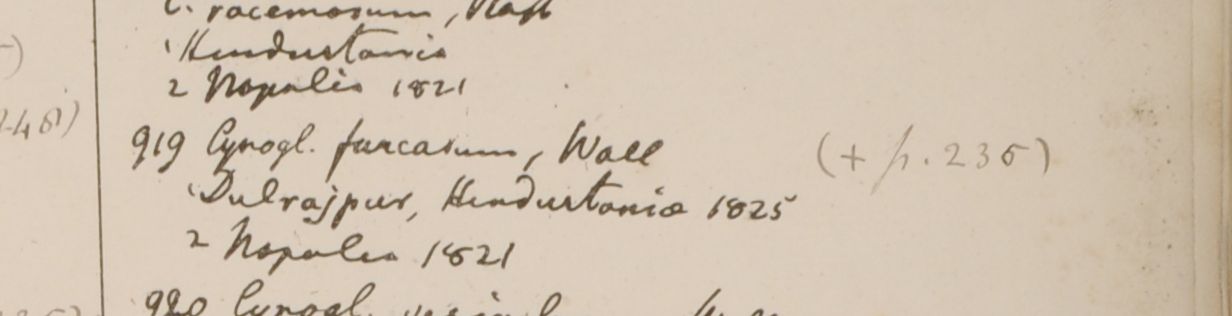 C. racemosum, Roxb
1 Hindustania
2 Napalia 1821
919 Cynogl. furcatum, Wall (+ p. 235)
1 Dulrajpur, Hindustania 1825
2 Napalia 1821
920 Cynogl.